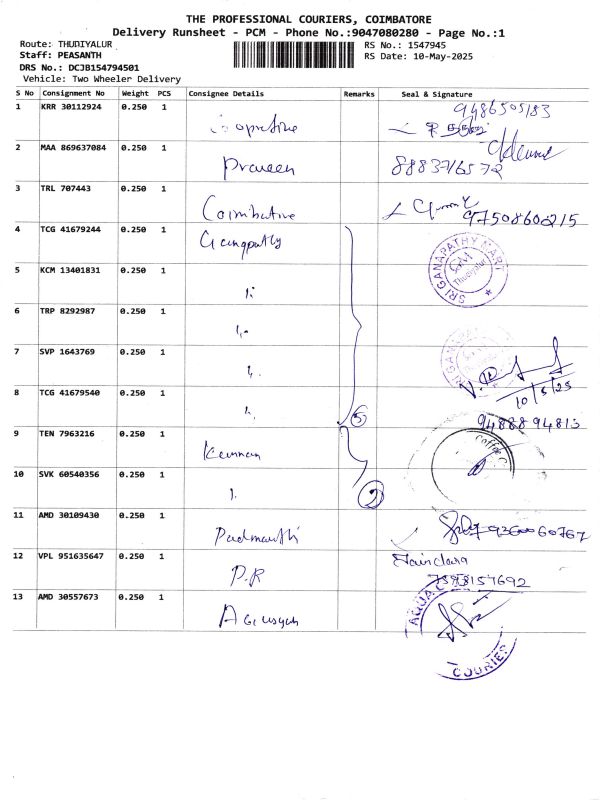 THE PROFESSIONAL COURIERS, COIMBATORE
Delivery Runsheet - PCM - Phone No.:9047080280 - Page No.:1
Route: THUDIYALUR
Staff: PEASANTH
DRS No.: DCJB154794501
Vehicle: Two Wheeler Delivery
RS No.: 1547945
RS Date: 10-May-2025
S No Consignment No Weight PCS Consignee Details Remarks Seal & Signature
1 KRR 30112924 0.250 1 9486505183
2 MAA 869637084 0.250 1 Praveen 8883716572
3 TRL 707443 0.250 1 Coimbative 9750860215
4 TCG 41679244 0.250 1 Gangpathy SRI GANAPATHY MART Thudiyalur
5 KCM 13401831 0.250 1
6 TRP 8292987 0.250 1
7 SVP 1643769 0.250 1 10/5/25
8 TCG 41679540 0.250 1 5 9488894813
9 TEN 7963216 0.250 1 Kannan
10 SVK 60540356 0.250 1 2
11 AMD 30109430 0.250 1 Padmavathi
12 VPL 951635647 0.250 1 P.R 7598157692
13 AMD 30557673 0.250 1 AQUA COURIER